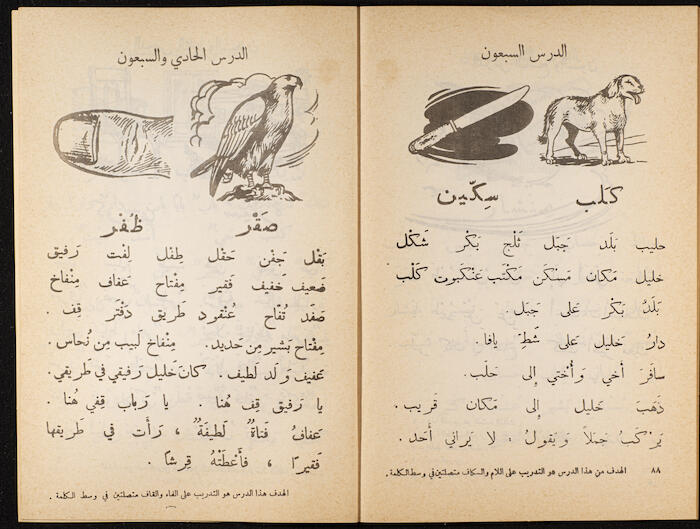 الدرس السبعون
كَلب سِكّين
حليب بَلَد جَبَل ثَلْج بَكْر شَكْل
خليل مَكان مَسْكَن مَكْتَب عَنْكَبوت كَلْب
بَلَدُ بَكْر عَلى جَبَل .
دارُ خَليل عَلى شَطِّ يافا .
سافَرَ أَخي وَأُخْتي إلى حَلَب .
ذَهَبَ خَليل إلى مَكان قَريب .
يَرْكَبُ جَمَلاً وَيَقولُ : لا يَراني أَحَد .
الهدف من هذا الدرس هو التدريب على اللام والكاف متصلتين في وسط الكلمة .
٨٨
الدرس الحادي والسبعون
صَقْر ظُفْر
بَقْل جَفْن حَقْل طِفْل لِفْت رَفيق
ضَعيف خَفيف فَقير مِفْتاح عَفاف مِنْفاخ
صَفَد تُفّاح عُنْقود طَريق دَفْتَر قِف .
مِفْتاح بَشير مِن حَديد . مِنْفاخ لَبيب مِن نُحاس .
عَفيف وَلَد لَطيف . كانَ خَليل رَفيقي في طَريقي .
يا رَفيق قِف هُنا . يا رَباب قِفي هُنا .
عَفافُ فَتاةٌ لَطيفَةٌ ، رَأَت في طَريقِها
فَقيرًا ، فَأَعْطَتْهُ قِرشًا .
الهدف هذا الدرس هو التدريب على الفاء والقاف متصلتين في وسط الكلمة .